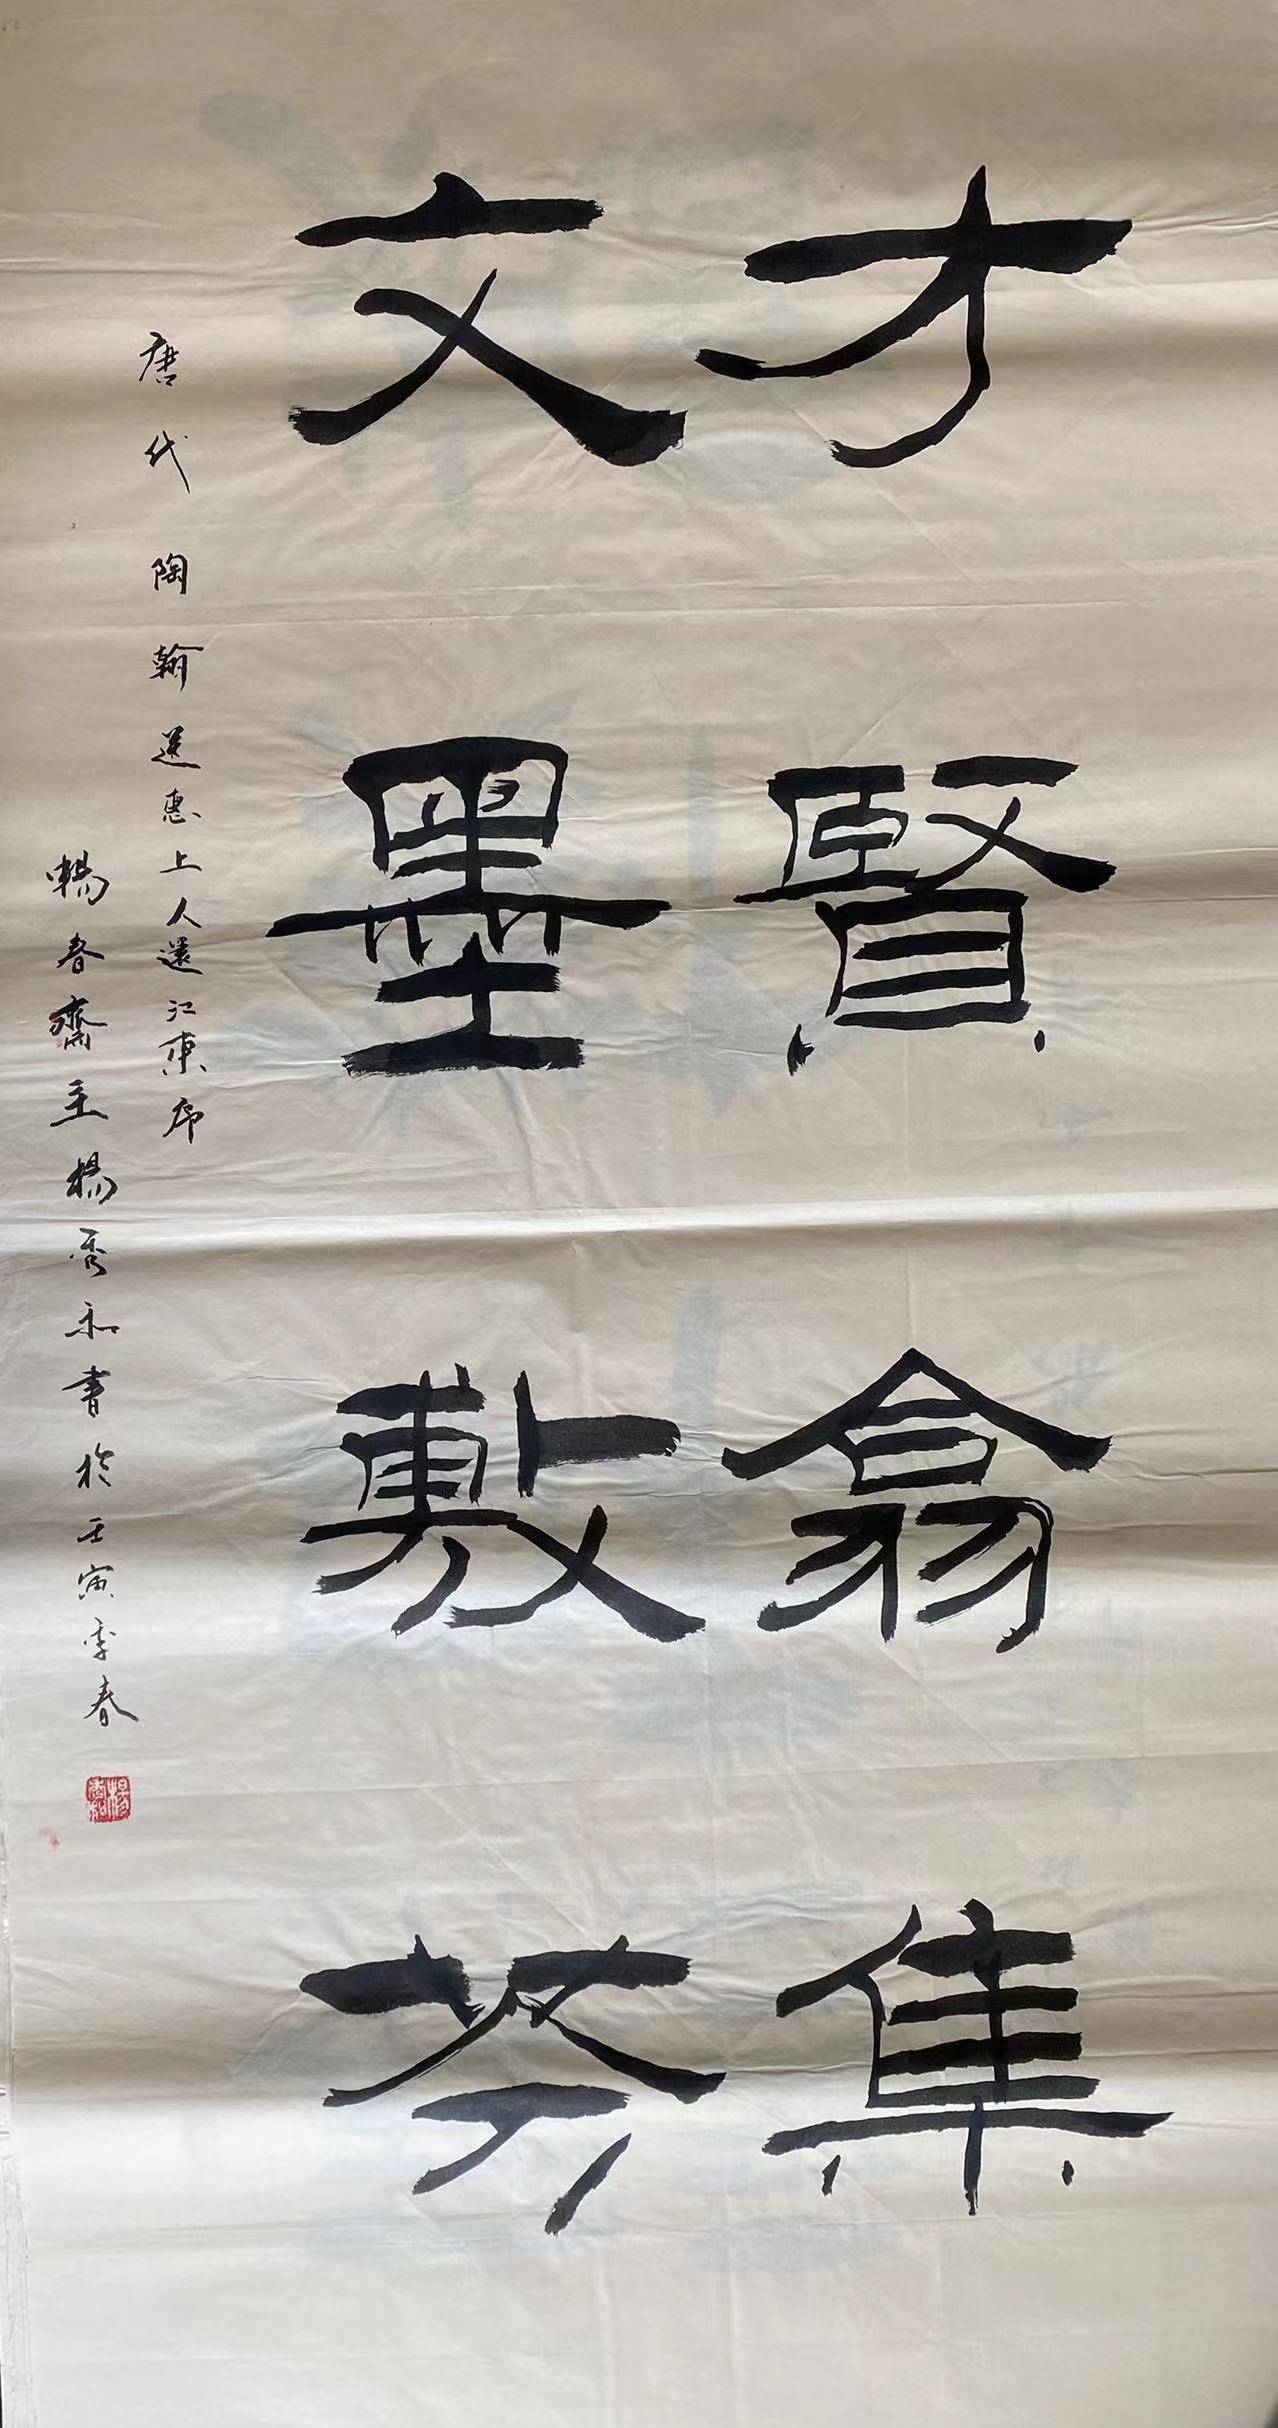 才賢翕集
文墨敷芬
唐代陶翰送惠上人還江東序
暢春齋主楊秀和書於壬寅季春
楊秀和